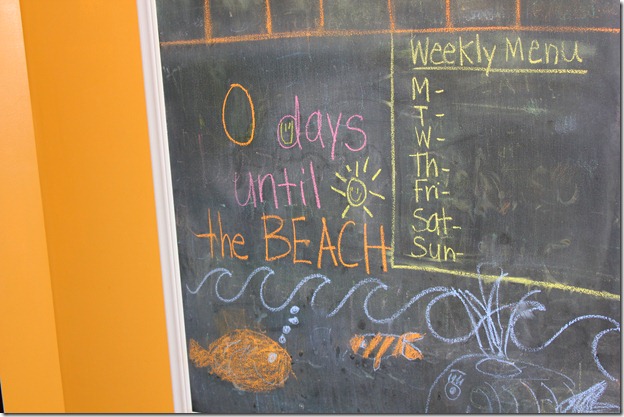 0 days
until
the BEACH
Weekly Menu
M-
T-
W-
Th-
Fri-
Sat-
Sun-